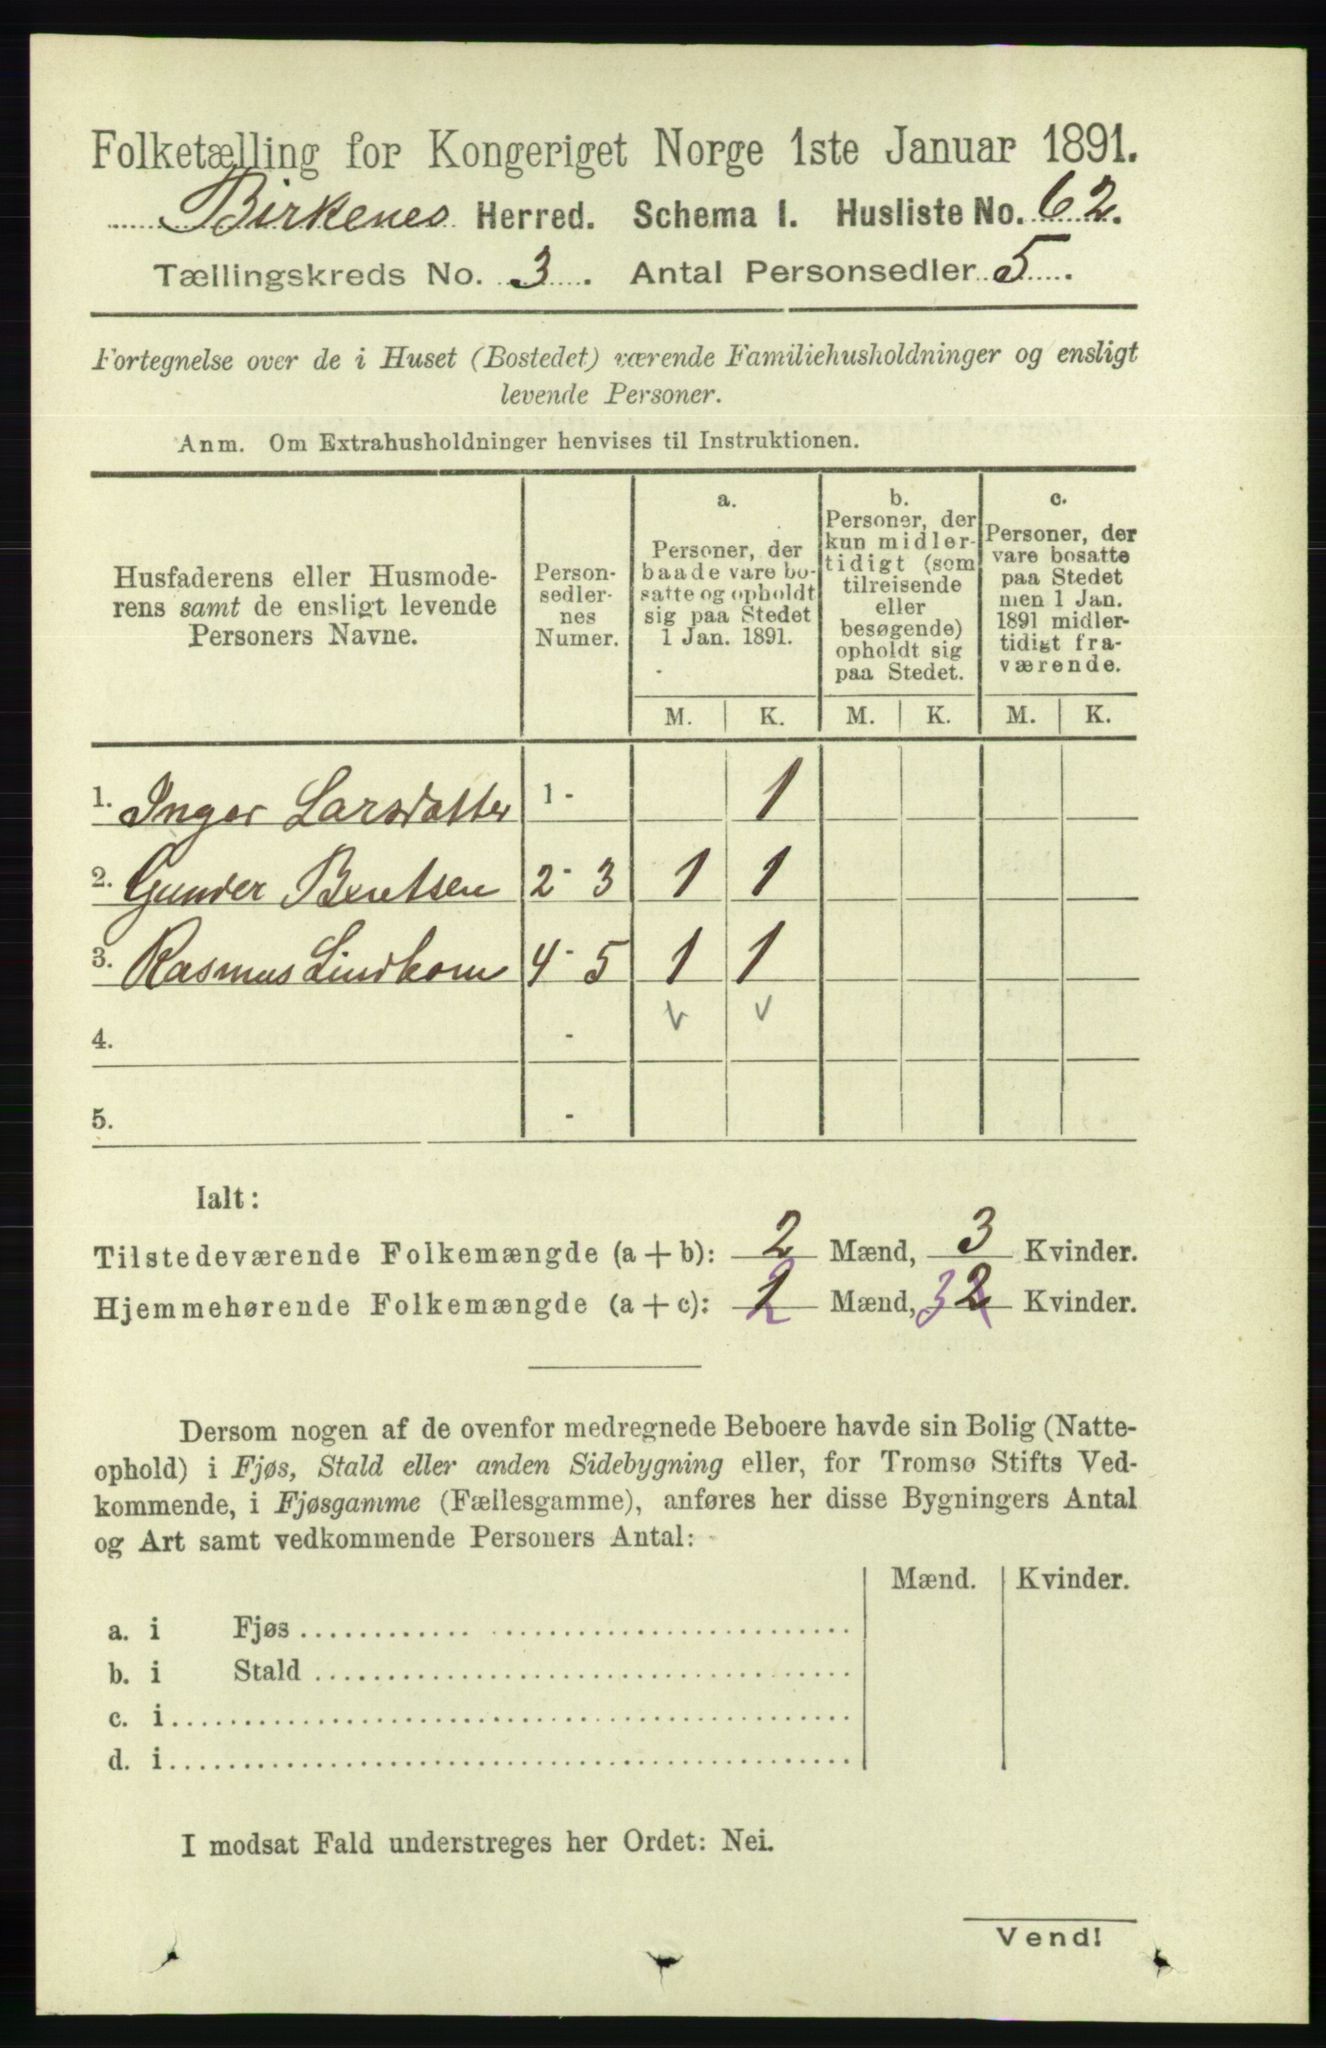 Folketælling for Kongeriget Norge 1ste Januar 1891.
Birkenes Herred. Schema I. Husliste No. 62.
Tællingskreds No. 3. Antal Personsedler 5.
Fortegnelse over de i Huset (Bostedet) værende Familiehusholdninger og ensligt
levende Personer.
Anm. Om Extrahusholdninger henvises til Instruktionen.
Husfaderens eller Husmode-
rens samt de ensligt levende
Personers Navne.
Person-
sedler-
nes
Numer.
a.
Personer, der
baade vare bo-
satte og opholdt
sig paa Stedet
1 Jan. 1891.
b.
Personer, der
kun midler-
tidigt (som
tilreisende
eller
besøgende)
opholdt sig
paa Stedet.
c.
Personer, der
vare bosatte
paa Stedet
men 1 Jan.
1891 midler-
tidigt fra-
værende.
M. K. M. K. M. K.
1. Inger Larsdatter 1 - 1
2. Gunder Bentsen 2 - 3 1 1
3. Rasmus Lindkom 4 - 5 1 1
4. -
5. -
Ialt:
Tilstedeværende Folkemængde (a + b): 2 Mænd, 3 Kvinder.
Hjemmehørende Folkemængde (a + c): 1 2 Mænd, 3 2 Kvinder.
Dersom nogen af de ovenfor medregnede Beboere havde sin Bolig (Natte-
ophold) i Fjøs, Stald eller anden Sidebygning eller, for Tromsø Stifts Ved-
kommende, i Fjøsgamme (Fællesgamme), anføres her disse Bygningers Antal
og Art samt vedkommende Personers Antal:
Mænd. Kvinder.
a. i Fjøs
b. i Stald
c. i
d. i
I modsat Fald understreges her Ordet: Nei.
Vend!